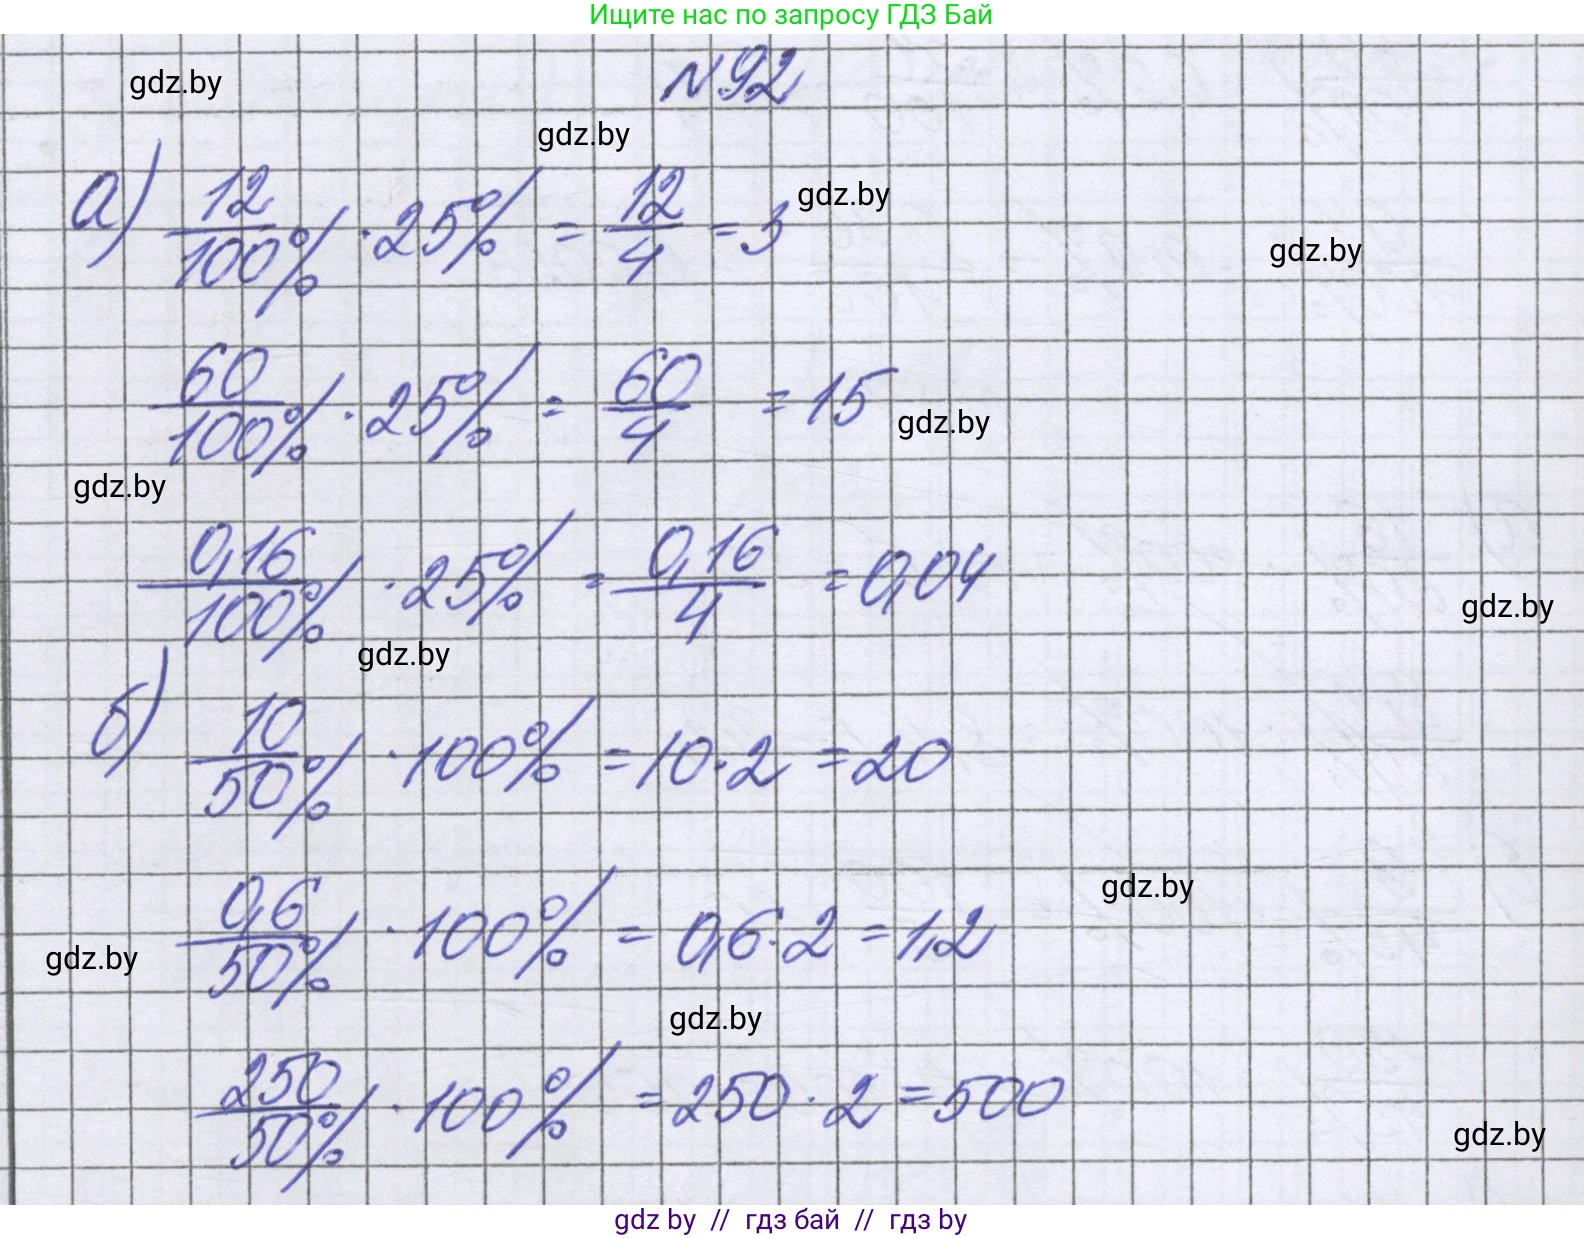 Ищите нас по запросу ГДЗ Бай
N 92
gdz.by
gdz.by
а) 12/100% · 25% = 12/4 = 3
gdz.by
gdz.by
60/100% · 25% = 60/4 = 15
gdz.by
gdz.by
0,16/100% · 25% = 0,16/4 = 0,04
gdz.by
gdz.by
б) 10/50% · 100% = 10 · 2 = 20
gdz.by
0,6/50% · 100% = 0,6 · 2 = 1,2
gdz.by
gdz.by
250/50% · 100% = 250 · 2 = 500
gdz.by
gdz by // гдз бай // гдз by